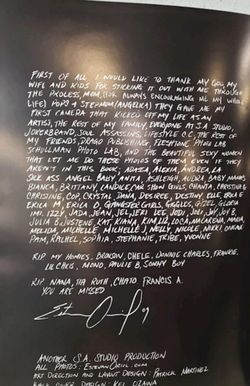 FIRST OF ALL I WOULD LIKE TO THANK MY GOD, MY
WIFE AND KIDS FOR STICKING IT OUT WITH ME THROUGH
THE PROCESS, MOM, (FOR ALWAYS ENCOURAGING ME MY WHOLE
LIFE) POPS & STEPMOM (ANGELIKA) THEY GAVE ME MY
FIRST CAMERA THAT KICKED OFF MY LIFE AS AN
ARTIST, THE REST OF MY FAMILY, EVERYONE AT S.A STUDIO,
JOKERBRAND, SOUL ASSASSINS, LIFESTYLE C.C, THE REST OF
MY FRIENDS, DRAGO PUBLISHING, FLESHTONE PHOTO LAB
SCHULMAN PHOTO LAB, AND THE BEAUTIFUL SEXY WOMEN
THAT LET ME DO THESE PHOTOS OF THEM EVEN IF THEY
AREN'T IN THIS BOOK: ADASEA, ALEXIA, ANDREA LA
SICK ASS ANGEL BABY, ANITA, ASHLEIGH, AUDRA, BABY MAMAS
BIANCA, BRITTANY, CANDICE, SHOW GIRLS, CHANTA, CHRISTIE,
CHRISTINE, COP, CRYSTAL, DANA, DESIREE, DESTINY, ELLE, ERICA
ERICA M, ERICA O, GANGSTER GIRLS, GIGGLES, GIZEL, GLORIA
IMI, IZZY, JADA, JEAN, JELJERI LEE, JODI, JOY, JUJU B
JULIA B, JUSTENE, KAT, KIANA, KIM, LIZ, LOCA, MACARENA, MARIA
MELIDA, MICHELLE, MICHELLE J, NELLY, NICOLE, NIKKI,
PAM, RACHEL, SOPHIA, STEPHANIE, TRIBE, YVONNE
RIP MY HOMIES: BROKON, CHELE, DONNIE CHARLES, FRANKIE,
LIL CHRIS, MONO, PAULIE B, SONNY BOY
RIP NANA, TIA RUTH, CHATO, FRANCIS A.
YOU ARE MISSED
ANOTHER S.A STUDIO PRODUCTION
ALL PHOTOS: ESTEVANORIOL.COM
ART DIRECTION AND LAYOUT DESIGN: PATRICK MARTINEZ
BACK COVER DESIGN: